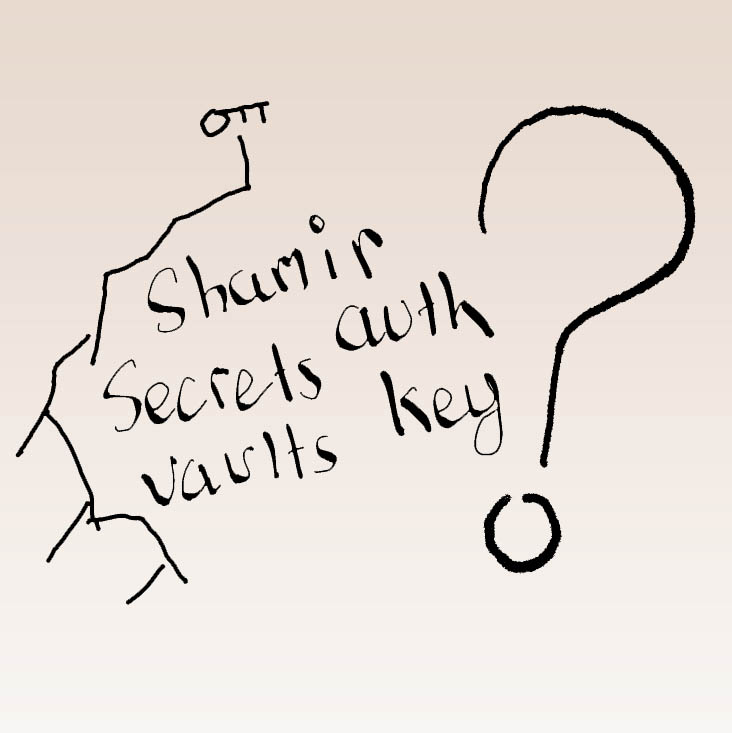 Shamir
Secrets auth
vaults key
?